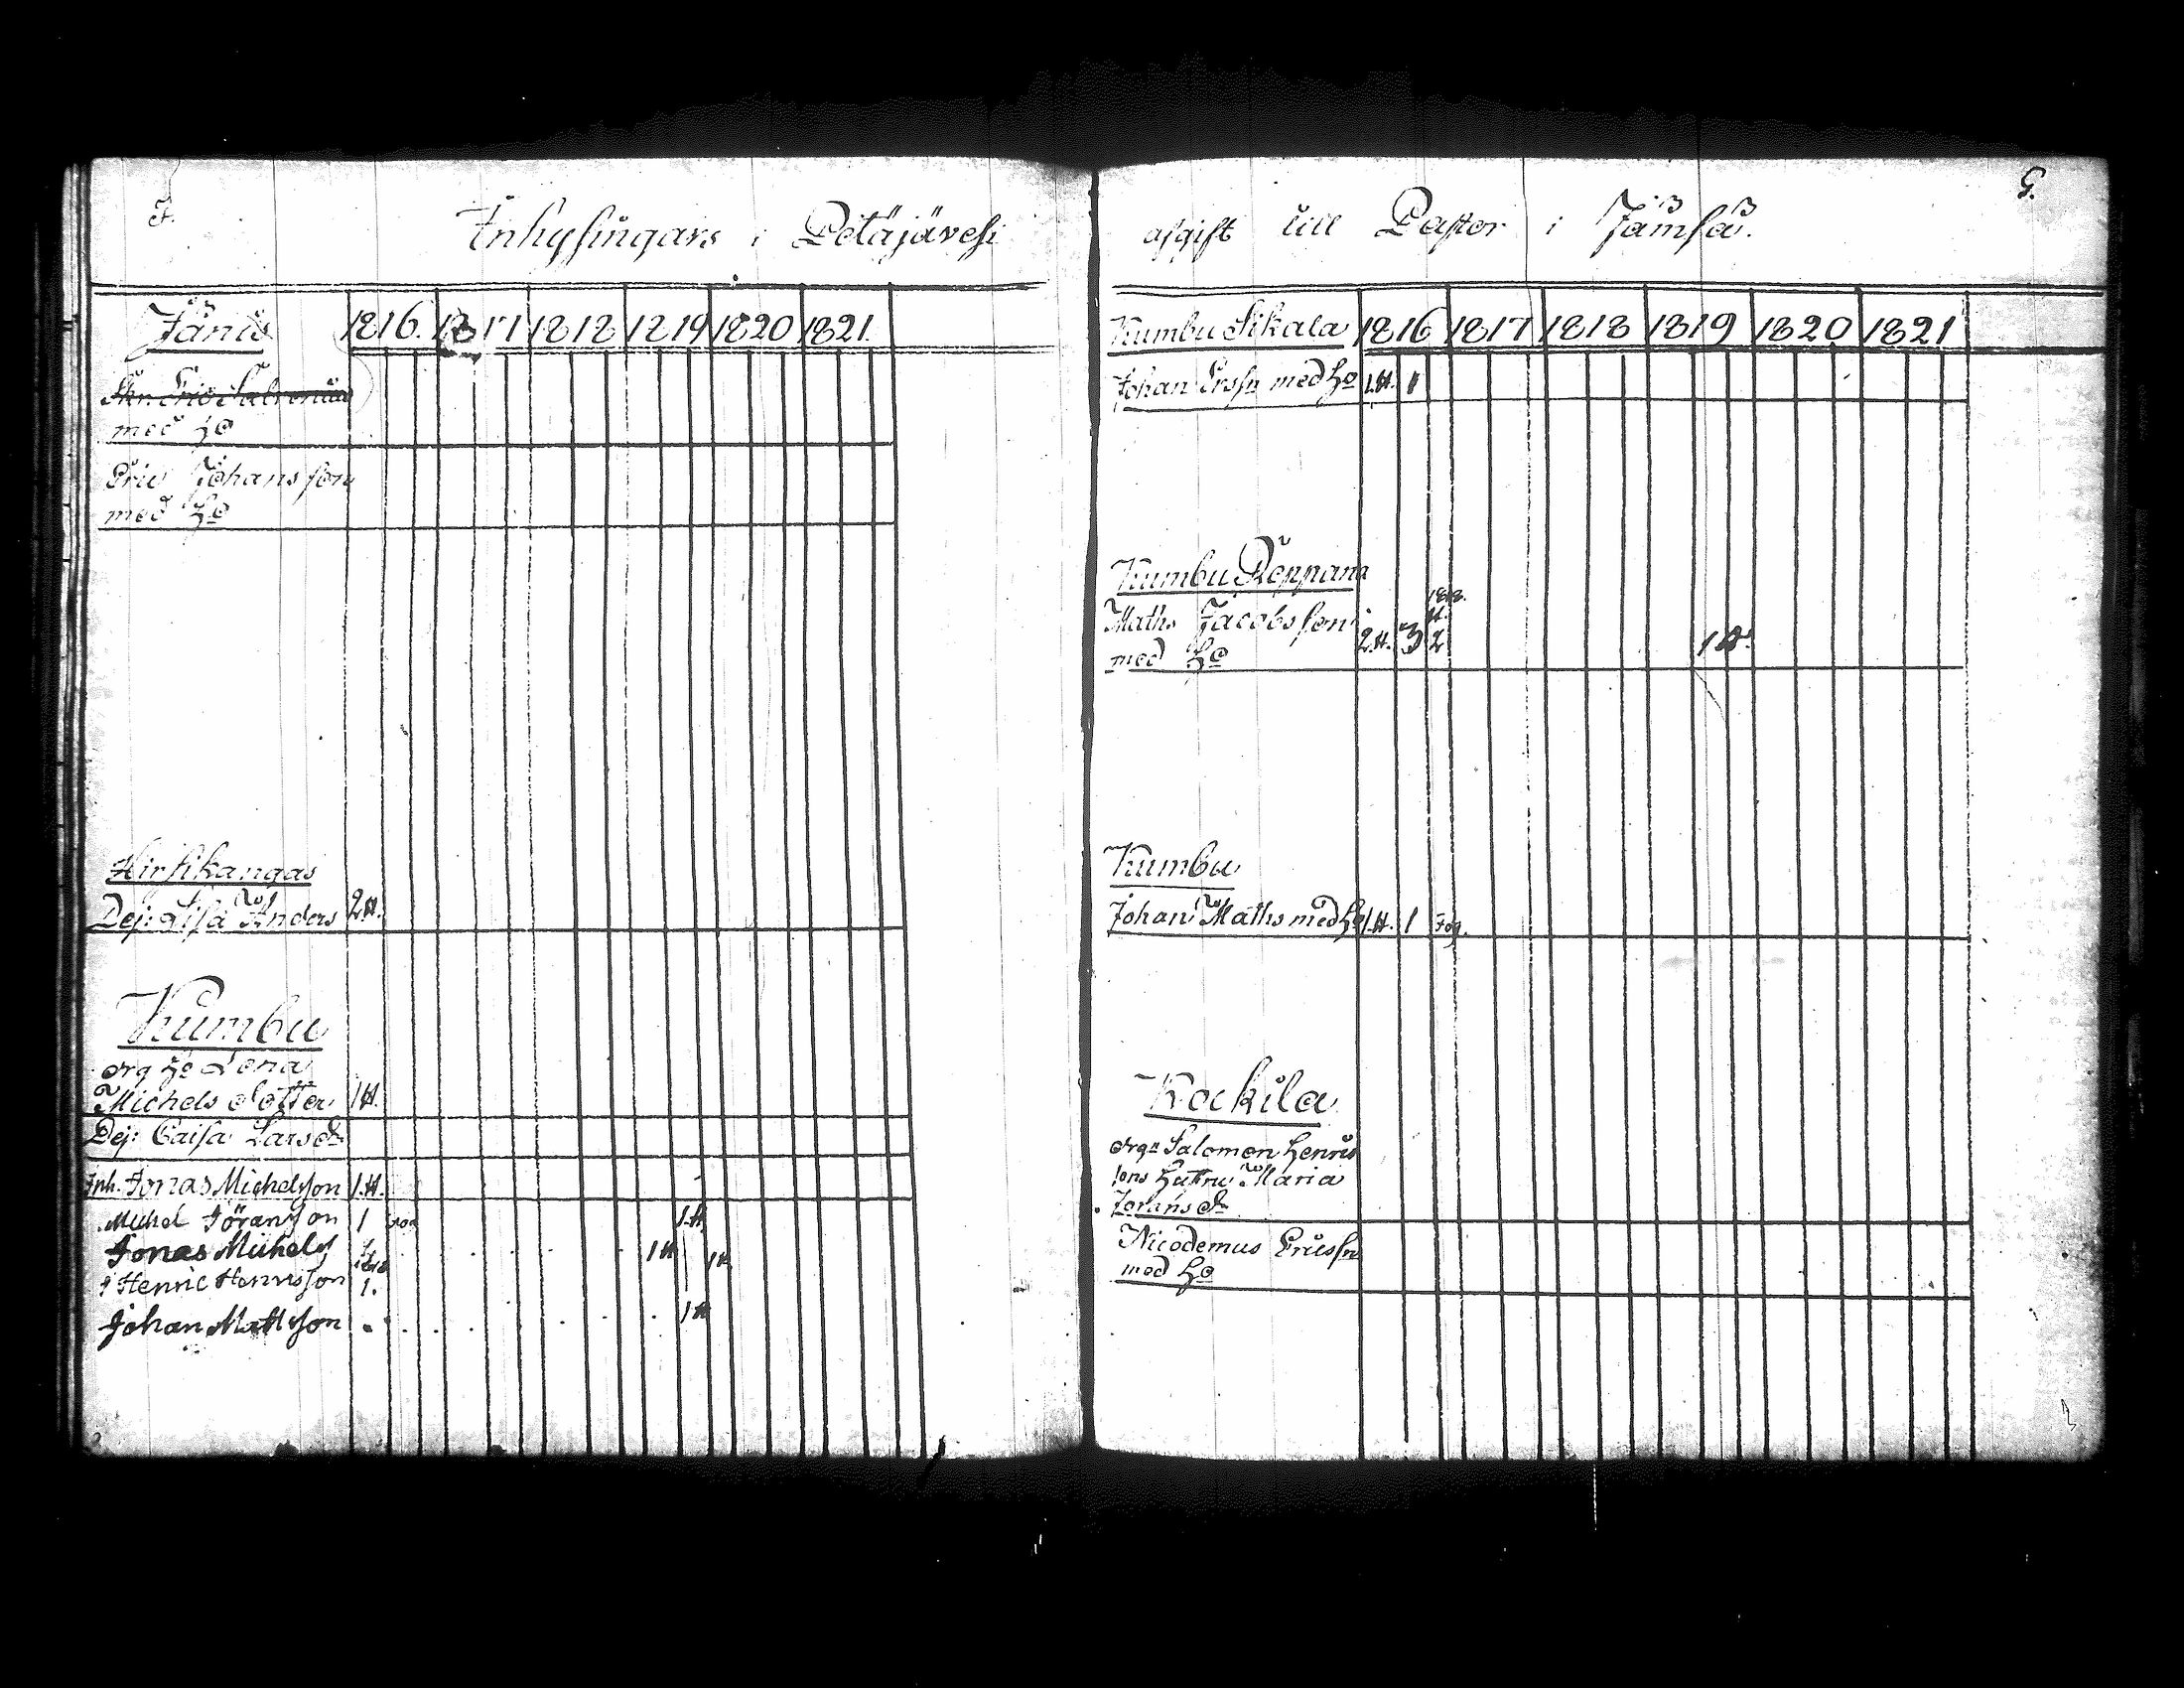 Inhysingars i Petäjävesi
Jänis 1816. 1817 1818 1819 1820 1821.
med ho
Eric Johansson
med ho
Hirsikangas
Dej: Lisa Anders 2 H.
Kumbu
Lena
Michels dotter 1 H.
Dej: Caisa Larsdr
Inh. Jonas Michelson 1 H.
Michel Göranson 1 1 H
Jonas Michels 1 H 1 H
Henric Henricsson 1.
Johan Mattsson 1 H
5.
afgift till Pastor i Jämsä.
Kumbu Sikala 1816 1817 1818 1819 1820 1821
Johan Erssn med ho 1 H. 1
Kumbu Reppana
1818.
Maths Jacobsson H.
med ho 2 H. 3 2 1 H.
Kumbu
Johan Maths med ho 1 H. 1
Kockila
Salomon Henrics
sons Hustru Maria
Nicodemus Ericssn
med ho